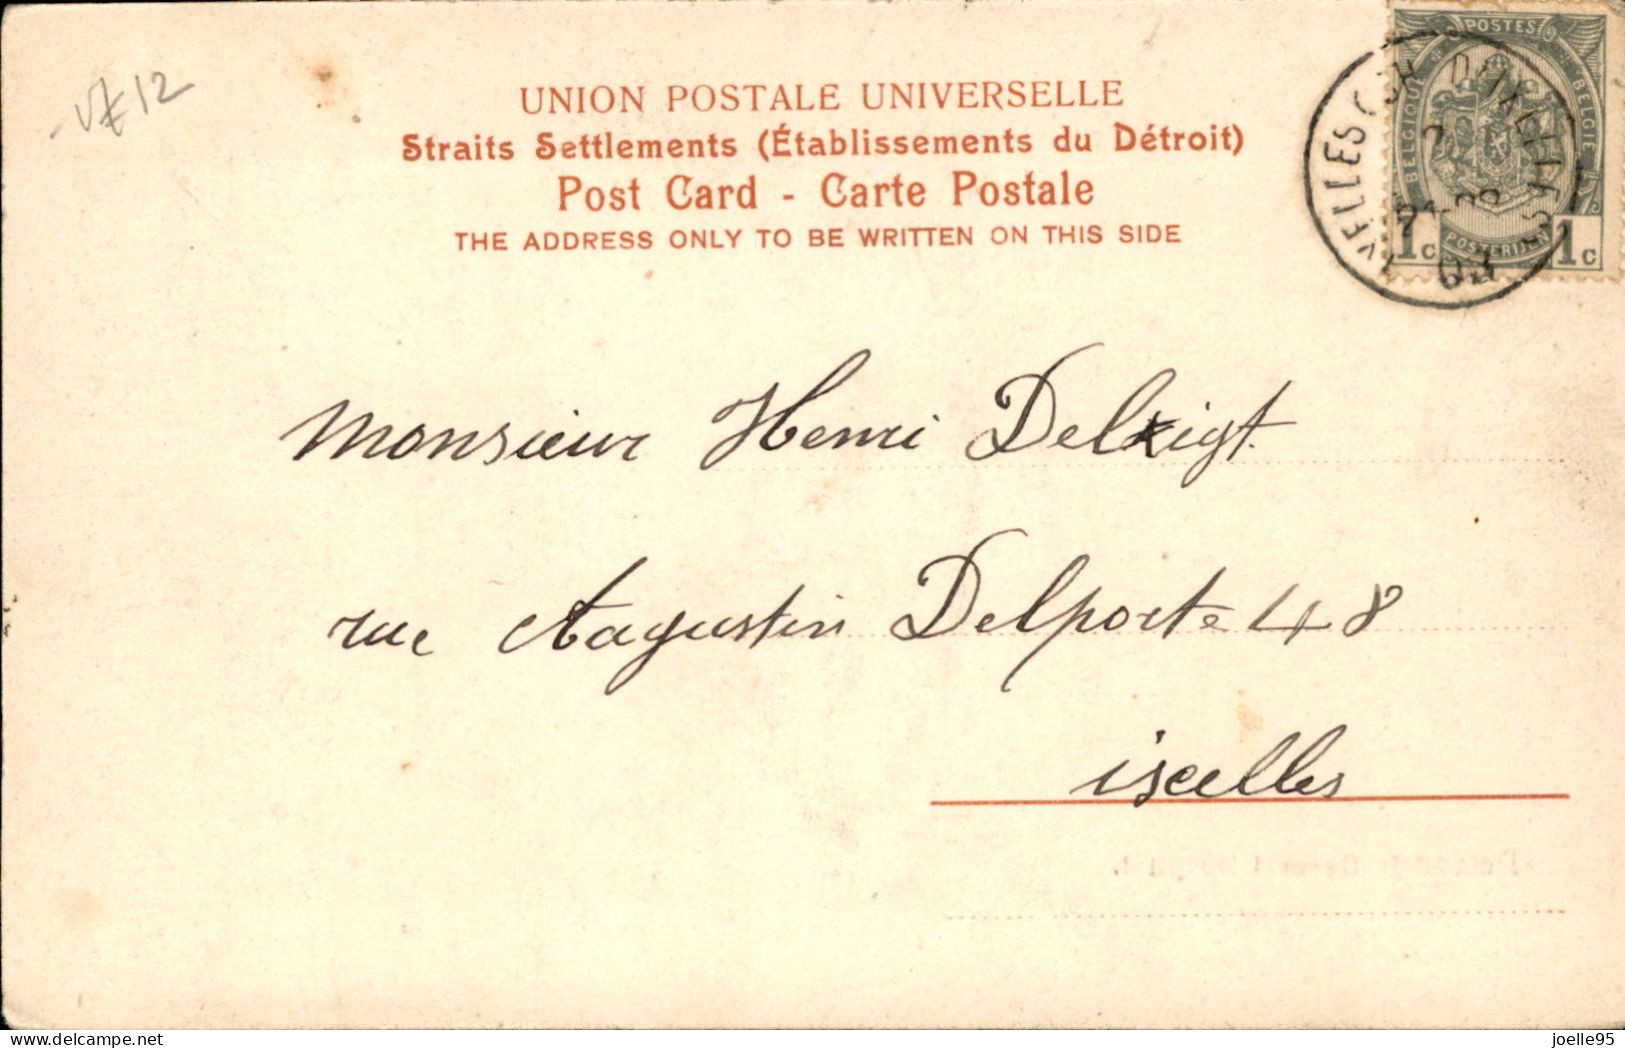 VZ 12
UNION POSTALE UNIVERSELLE
Straits Settlements (Établissements du Détroit)
Post Card - Carte Postale
THE ADDRESS ONLY TO BE WRITTEN ON THIS SIDE
POSTES
BELGIQUE
BELGIË
POSTERIJEN
1c 1c
Monsieur Henri Delzigt.
rue Augustin Delporte 48
ixelles
joelle95